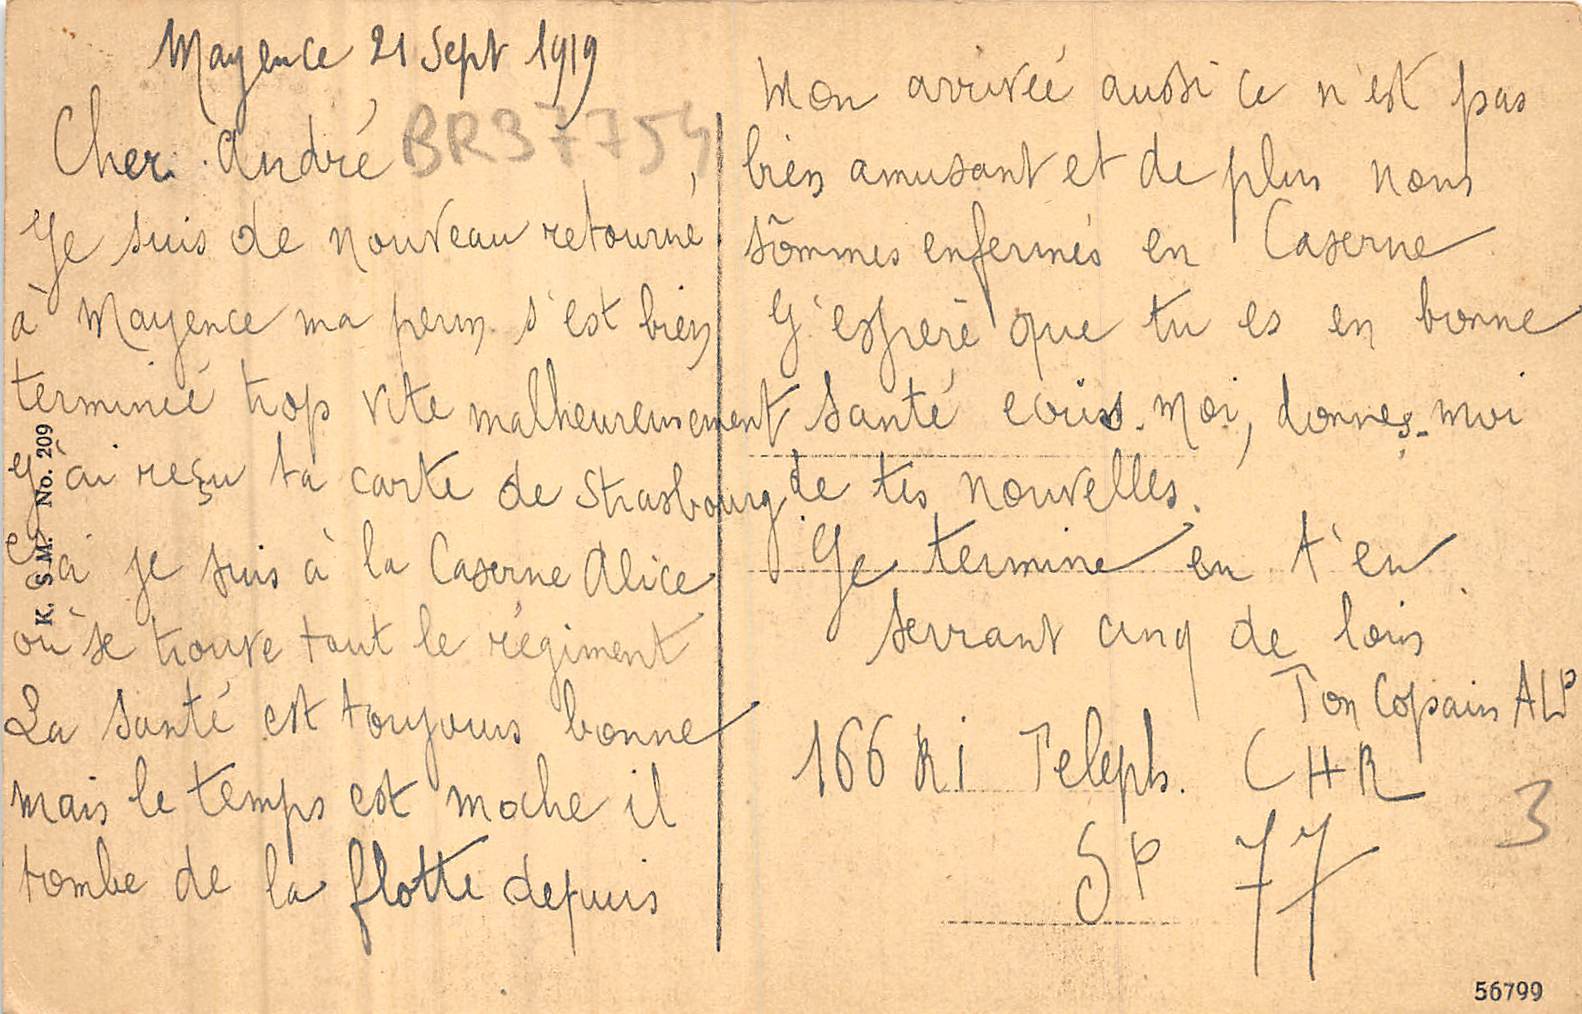 Mayence 21 Sept 1919
Cher André
BR37754
Je suis de nouveau retourné
à Mayence ma perm s'est bien
terminée trop vite malheureusement
J'ai reçu ta carte de Strasbourg
je suis à la Caserne Alice
où se trouve tout le régiment
La santé est toujours bonne
mais le temps est moche il
tombe de la flotte depuis
mon arrivée aussi ce n'est pas
bien amusant et de plus nous
sommes enfermés en Caserne
J'esperè que tu es en bonne
santé ecris-moi, donnes-moi
de tes nouvelles.
Je termine en t'en
serrant cinq de loin
Ton Copain
166 RI Teleph. CHR
SP 77
3
K. S.M. No. 209
56799